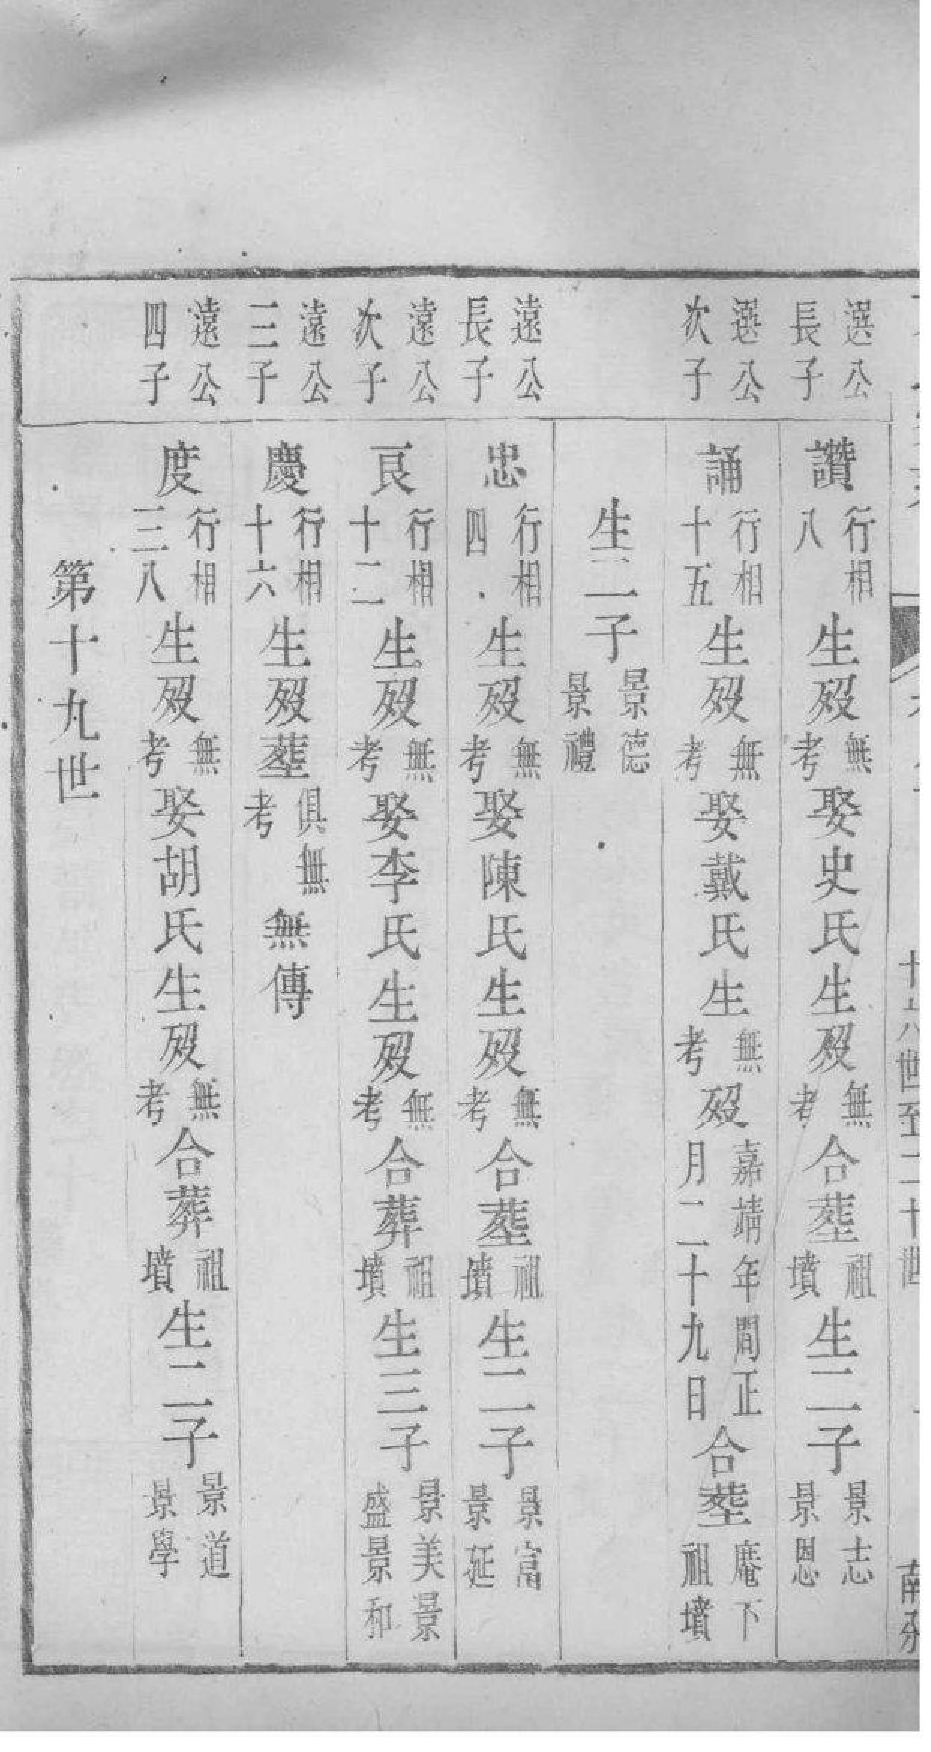 十六世至二十世
選公長子
讚行相八生歿無考娶史氏生歿無考合塟祖墳生二子景志景恩
選公次子
誦行相十五生歿無考娶戴氏生無考歿嘉靖年間正月二十九日合塟庵下祖墳
生二子景德景禮
遠公長子
忠行相四生歿無考娶陳氏生歿無考合塟祖墳生二子景富景延
遠公次子
良行相十二生歿無考娶李氏生歿無考合葬祖墳生三子景美景盛景和
遠公三子
慶行相十六生歿塟俱無考無傳
遠公四子
度行相三八生歿無考娶胡氏生歿無考合葬祖墳生二子景道景學
第十九世